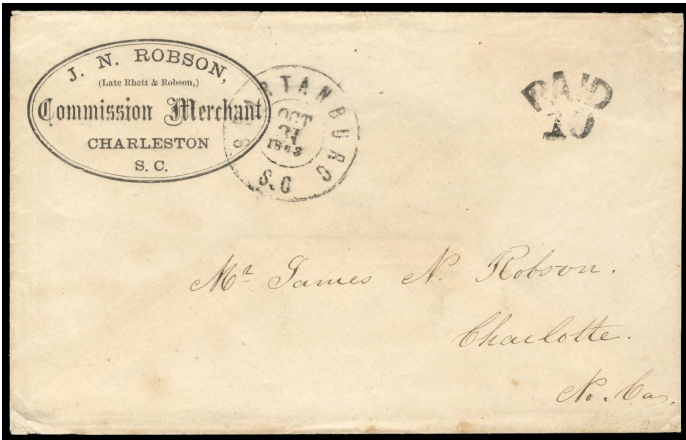 J. N. ROBSON,
(Late Rhett & Robson,)
Commission Merchant
CHARLESTON
S. C.
SPARTANBURG
OCT
31
1863
S.C
PAID
10
Mr. James N. Robson.
Charlotte.
No. Car.